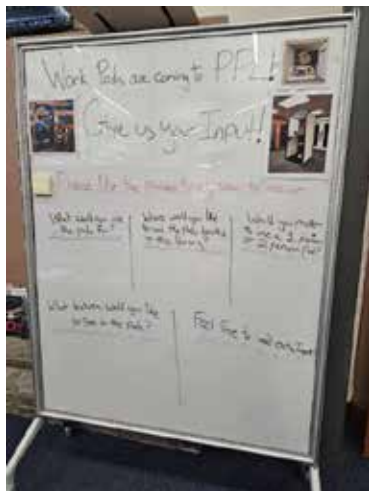 Work Pods are coming to PPL!
Give us your Input!!
Please
What would you use
the pods for?
Where would you like
to see the pods located
in the library?
Would you prefer
to use a 1 person
or 2 person Pod?
What features would you like
to see in the pods?
Feel free to add